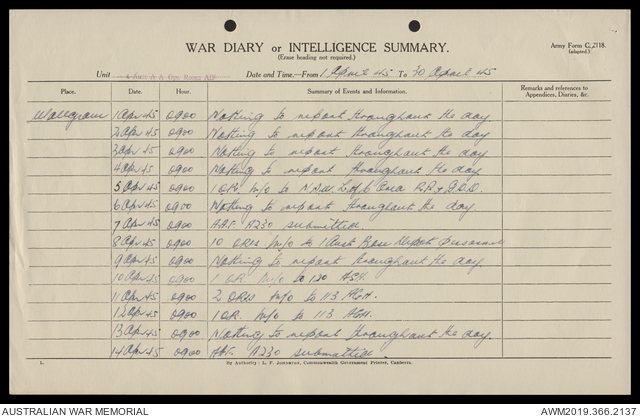 WAR DIARY or INTELLIGENCE SUMMARY.
(Erase heading not required.)
Army Form C.2118.
(adapted.)
Unit A A Ops Room AIF Date and Time.—From 1 April 45 To 30 April 45
Place. Date. Hour. Summary of Events and Information. Remarks and references to Appendices, Diaries, &c.
Wallgrove 1 Apr 45 0900 Nothing to report throughout the day
2 Apr 45 0900 Nothing to report throughout the day
3 Apr 45 0900 Nothing to report throughout the day
4 Apr 45 0900 Nothing to report throughout the day
5 Apr 45 0900 1 OR. m/o to N.S.W. L of C Area R.R & G.D.D.
6 Apr 45 0900 Nothing to report throughout the day
7 Apr 45 0900 A.A.F. A230 submitted
8 Apr 45 0900 10 ORs m/o to 1 Aust Base
9 Apr 45 0900 Nothing to report throughout the day.
10 Apr 45 0900 1 OR. m/o to 120 A.S.H.
11 Apr 45 0900 2 ORs m/o to 113 AGH.
12 Apr 45 0900 1 OR. m/o to 113 AGH.
13 Apr 45 0900 Nothing to report throughout the day.
14 Apr 45 0900 AAF. A230 submitted
L. By Authority: L. F. Johnston, Commonwealth Government Printer, Canberra.
AUSTRALIAN WAR MEMORIAL AWM2019.366.2137